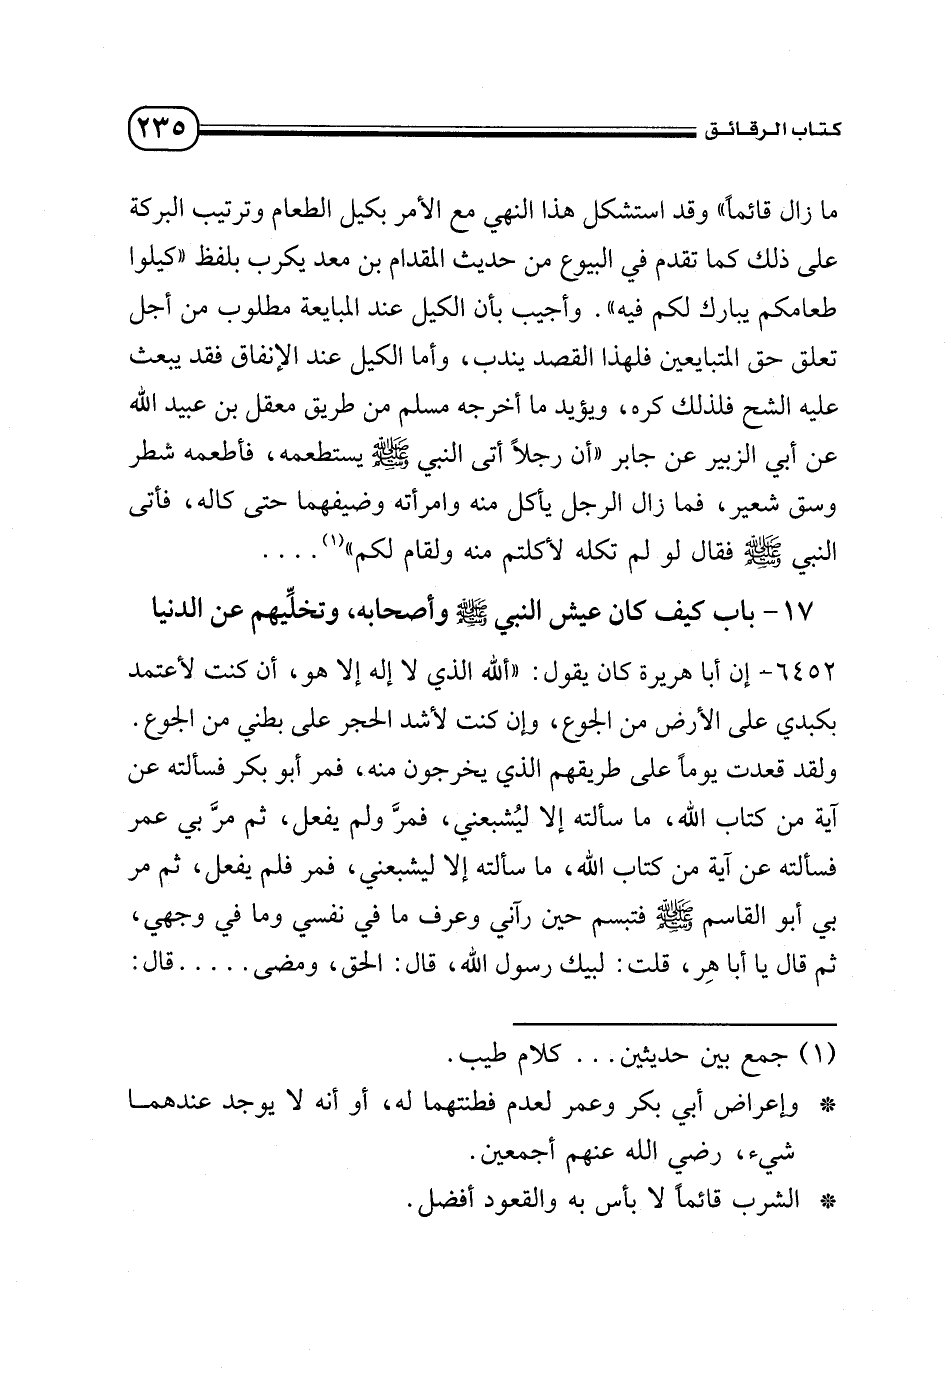 كتاب الرقائق ٢٣٥
ما زال قائماً» وقد استشكل هذا النهي مع الأمر بكيل الطعام وترتيب البركة
على ذلك كما تقدم في البيوع من حديث المقدام بن معد يكرب بلفظ «كيلوا
طعامكم يبارك لكم فيه». وأجيب بأن الكيل عند المبايعة مطلوب من أجل
تعلق حق المتبايعين فلهذا القصد يندب، وأما الكيل عند الإنفاق فقد يبعث
عليه الشح فلذلك كره، ويؤيد ما أخرجه مسلم من طريق معقل بن عبيد الله
عن أبي الزبير عن جابر «أن رجلاً أتى النبي ﷺ يستطعمه، فأطعمه شطر
وسق شعير، فما زال الرجل يأكل منه وامرأته وضيفهما حتى كاله، فأتى
النبي ﷺ فقال لو لم تكله لأكلتم منه ولقام لكم»(١). . . .
١٧- باب كيف كان عيش النبي ﷺ وأصحابه، وتخلِّيهم عن الدنيا
٦٤٥٢- إن أبا هريرة كان يقول: «ألله الذي لا إله إلا هو، أن كنت لأعتمد
بكبدي على الأرض من الجوع، وإن كنت لأشد الحجر على بطني من الجوع.
ولقد قعدت يوماً على طريقهم الذي يخرجون منه، فمر أبو بكر فسألته عن
آية من كتاب الله، ما سألته إلا ليُشبعني، فمرَّ ولم يفعل، ثم مرَّ بي عمر
فسألته عن آية من كتاب الله، ما سألته إلا ليشبعني، فمر فلم يفعل، ثم مر
بي أبو القاسم ﷺ فتبسم حين رآني وعرف ما في نفسي وما في وجهي،
ثم قال يا أبا هِر، قلت: لبيك رسول الله، قال: الحق، ومضى. . . . . قال:
(١) جمع بين حديثين. . . كلام طيب.
* وإعراض أبي بكر وعمر لعدم فطنتهما له، أو أنه لا يوجد عندهما
شيء، رضي الله عنهم أجمعين.
* الشرب قائماً لا بأس به والقعود أفضل.